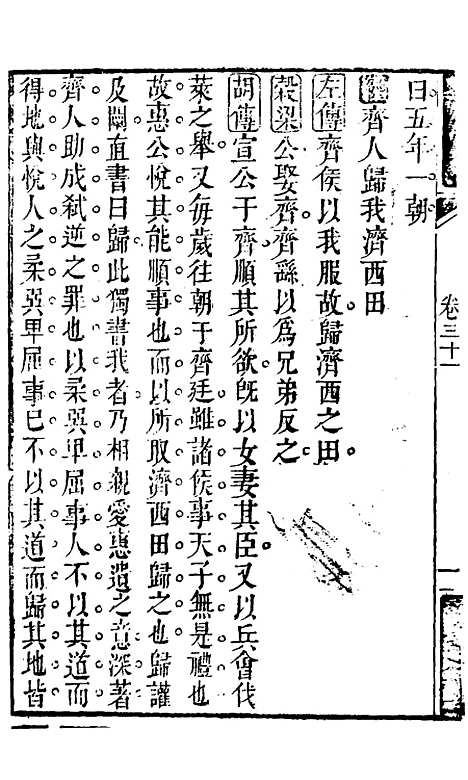 曰五年一朝
經齊人歸我濟西田
左傳齊侯以我服故歸濟西之田。
穀梁公娶齊。齊繇以爲兄弟反之。
胡傳宣公于齊順其所欲旣以女妻其臣。又以兵會伐
萊之舉。又每歲往朝于齊廷雖諸侯事天子無是禮也
故惠公悅其能順事也而以所取濟西田歸之也。歸讙
及闡直書曰歸此獨書我者乃相親愛惠遺之意深著
齊人助成弑逆之罪也。以柔巽卑屈事人不以其道而
得地與悅人之柔巽卑屈事已不以其道而歸其地皆
卷三十一